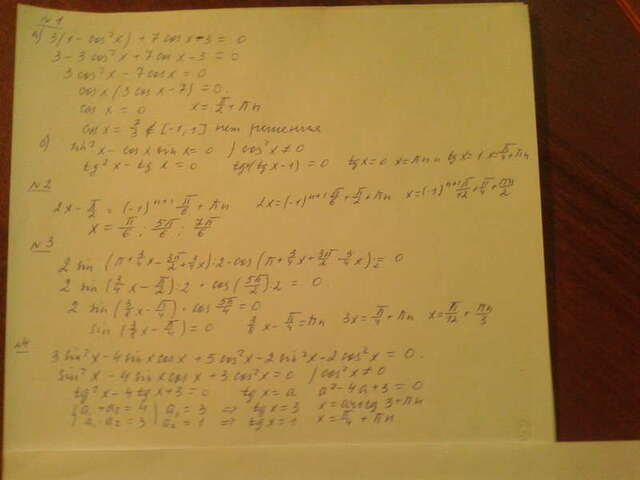 №1
а) 3(x - cos²x) + 7cosx - 3 = 0
3 - 3cos²x + 7cosx - 3 = 0
3cos²x - 7cosx = 0
cosx (3cosx - 7) = 0.
cosx = 0 x = π/2 + πn
cosx = 7/3 ∉ [-1,1] нет решения
б) sin²x - cosx sinx = 0 / cos²x ≠ 0
tg²x - tgx = 0 tgx(tgx - 1) = 0 tgx = 0 x = πn tgx = 1 x = π/4 + πn
№2
2x - π/2 = (-1)ⁿ⁺¹ π/6 + πn 2x = (-1)ⁿ⁺¹ π/6 + π/2 + πn x = (-1)ⁿ⁺¹ π/12 + π/4 + πn/2
x = π/6 ; 5π/6 ; 7π/6
№3
2 sin (π + 3/4x - 3π/2 + 3/4x) : 2 · cos (π + 3/4x + 3π/2 - 3/4x) : 2 = 0
2 sin (3/4x - π/2) : 2 · cos (5π/2) : 2 = 0
2 sin (3/8x - π/4) · cos 5π/4 = 0
sin (3/8x - π/4) = 0 3/8x - π/4 = πn 3x = π/4 + πn x = π/12 + πn/3
№4
3sin²x - 4sinxcosx + 5cos²x - 2sin²x - 2cos²x = 0.
sin²x - 4sinxcosx + 3cos²x = 0 / cos²x ≠ 0
tg²x - 4tgx + 3 = 0 tgx = a a² - 4a + 3 = 0
{ a₁ + a₂ = 4 | a₁ = 3 ⇒ tgx = 3 x = arctg 3 + πn
a₁ · a₂ = 3 | a₂ = 1 ⇒ tgx = 1 x = π/4 + πn